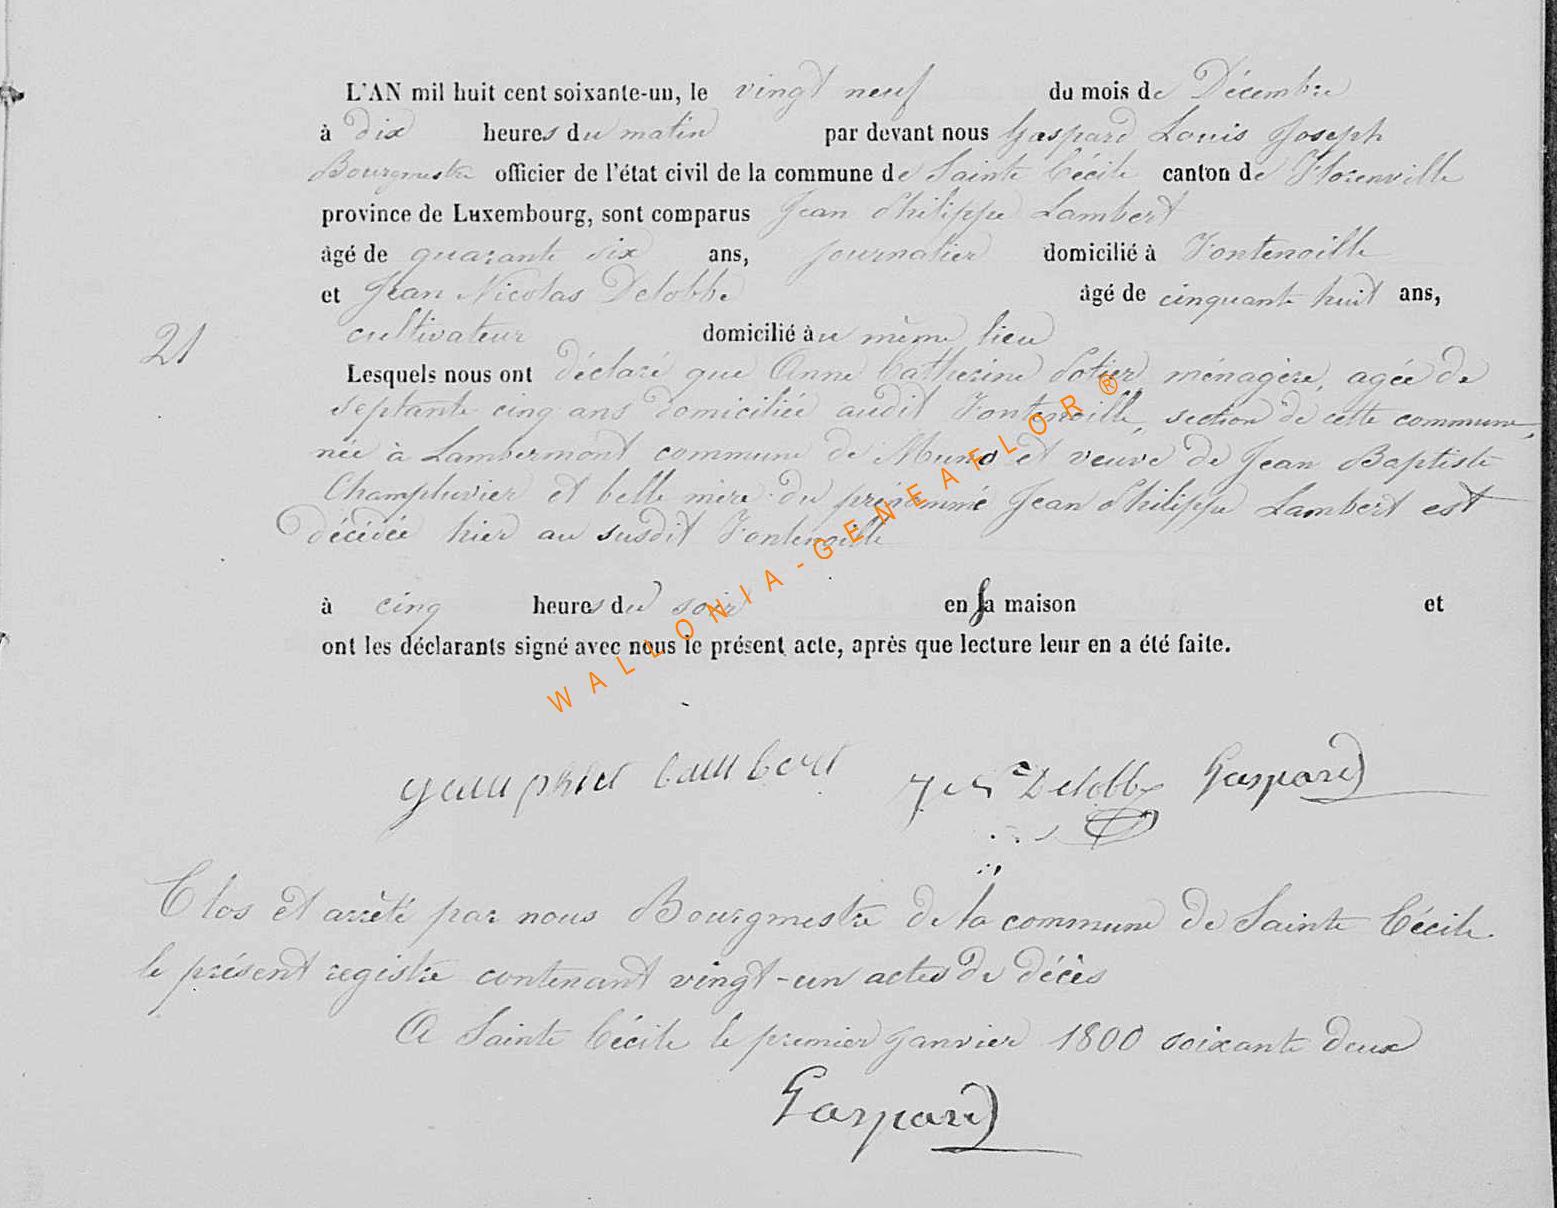 L'AN mil huit cent soixante-un, le vingt neuf du mois de Décembre
à dix heures du matin par devant nous Gaspard Louis Joseph
Bourgmestre officier de l'état civil de la commune de Sainte Cécile canton de Florenville
province de Luxembourg, sont comparus Jean Philippe Lambert
âgé de quarante six ans, journalier domicilié à Fontenoille
et Jean Nicolas Delobbe âgé de cinquante huit ans,
cultivateur domicilié au même lieu
21
Lesquels nous ont déclaré que Anne Catherine Potier ménagère, agée de
septante cinq ans domiciliée audit Fontenoille, section de cette commune,
née à Lambermont commune de Muno et veuve de Jean Baptiste
Champluvier et belle mère du prénommé Jean Philippe Lambert est
décédée hier au susdit Fontenoille
à cinq heures du soir en sa maison et
ont les déclarants signé avec nous le présent acte, après que lecture leur en a été faite.
WALLONIA-GENEAFLOR ®
Lambert Delobbe Gaspard
Clos et arrêté par nous Bourgmestre de la commune de Sainte Cécile
le présent registre contenant vingt-un actes de décès
A Sainte Cécile le premier janvier 1800 soixante deux
Gaspard